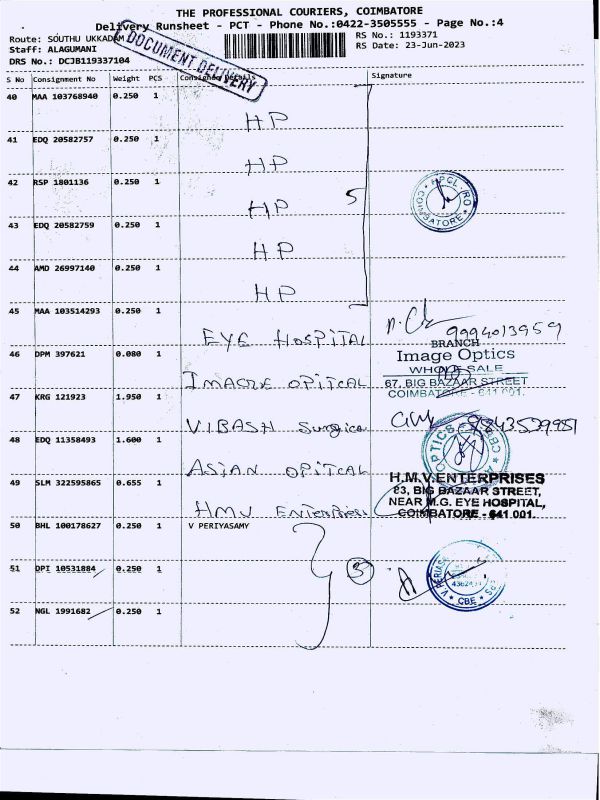 THE PROFESSIONAL COURIERS, COIMBATORE
Delivery Runsheet - PCT - Phone No.:0422-3505555 - Page No.:4
Route: SOUTHU UKKADAM
RS No.: 1193371
Staff: ALAGUMANI
RS Date: 23-Jun-2023
DRS No.: DCJB119337104
DOCUMENT DELIVERY
S No Consignment No Weight PCS Consignee Details Signature
40 MAA 103768940 0.250 1
HP
41 EDQ 20582757 0.250 1
HP
42 RSP 1801136 0.250 1
HP
5
HPCL RO
COIMBATORE
43 EDQ 20582759 0.250 1
HP
44 AMD 26997140 0.250 1
HP
45 MAA 103514293 0.250 1
EYE HOSPITAL
9994013959
46 DPM 397621 0.080 1
IMAGRE OPITCAL
BRANCH
Image Optics
WHOLE SALE
67, BIG BAZAAR STREET
COIMBATORE - 641 001.
47 KRG 121923 1.950 1
VIBASH Surgical
9843539981
48 EDQ 11358493 1.600 1
ASIAN OPITCAL
OPTICS
CBE
49 SLM 322595865 0.655 1
HMV ENTERPRISES
H.M.V.ENTERPRISES
83, BIG BAZAAR STREET,
NEAR M.G. EYE HOSPITAL,
COIMBATORE - 641 001.
50 BHL 100178627 0.250 1 V PERIYASAMY
51 DPI 10531884 0.250 1
3
CBE
52 NGL 1991682 0.250 1